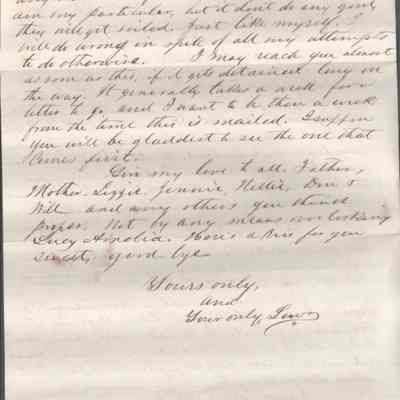 am my particular, but it don't do any good
they all get soiled just like myself. I
will do wrong in spite of all my attempts
to do otherwise. I may reach you almost
as soon as this, if it gets detained long on
the way. It generally takes a week for a
letter to go and I want to be there a week
from the time this is mailed. I suppose
you will be gladdest to see the one that
comes first.
Give my love to all. Father,
Mother, Lizzie, Jennie, Nettie, Don &
Will and any others you think
proper. Not by any means overlooking
Lucy. Here's a kiss for you
sweet, good bye
Yours only,
and
Your only, Lewis